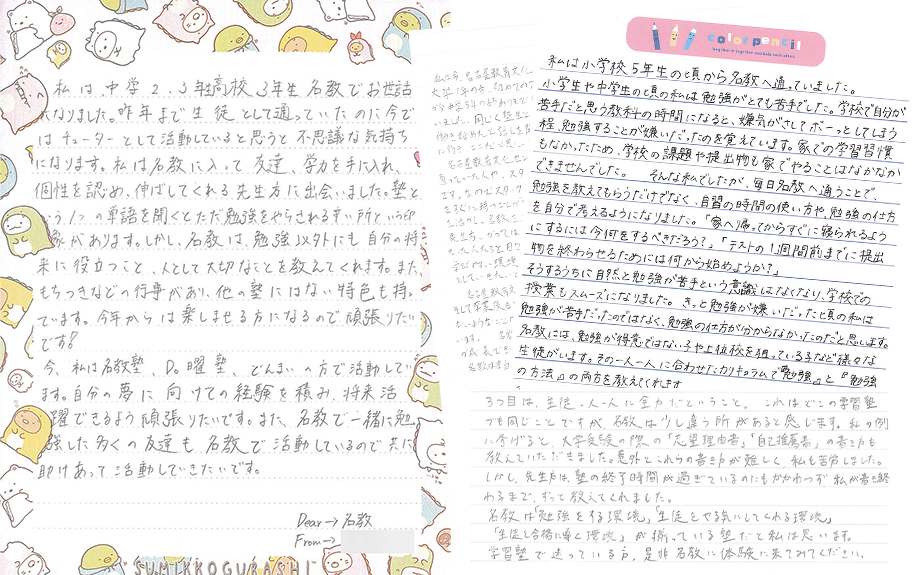 私は中学2、3年高校3年生名教でお世話
になりました。昨年まで生徒として通っていたのに今で
はチューターとして活動していると思うと不思議な気持ち
になります。私は名教に入って友達、学力を手に入れ、
個性を認め、伸ばしてくれる先生方に出会いました。塾と
いう1つの単語を聞くとただ勉強をやらされる辛い所という印
象があります。しかし、名教は勉強以外にも自分の将
来に役立つこと、人として大切なことを教えてくれます。また、
もちつきなどの行事があり、他の塾にはない特色も持っ
ています。今年からは楽しませる方になるので頑張りたい
です!
今、私は名教塾、D。曜塾、どんまいの方で活動してい
ます。自分の夢に向けての経験を積み、将来活
躍できるよう頑張りたいです。また、名教で一緒に勉
強した多くの友達も名教で活動しているので共に
助けあって活動していきたいです。
Dear→名教
From→
SUMIKKOGURASHI
color pencil
私は小学校5年生の頃から名教へ通っていました。
小学生や中学生の頃の私は勉強がとても苦手でした。学校で自分が
苦手だと思う教科の時間になると、嫌気がさしてボーっとしてしまう
程、勉強することが嫌いだったのを覚えています。家での学習習慣
もなかったため、学校の課題や提出物も家でやることはなかなか
できませんでした。 そんな私でしたが、毎日名教へ通うことで、
勉強を教えてもらうだけでなく、自習の時間の使い方や勉強の仕方
を自分で考えるようになりました。「家へ帰ってからすぐに寝られるよう
にするには今何をするべきだろう?」「テストの1週間前までに提出
物を終わらせるためには何から始めようか?」
そうするうちに自然と勉強が苦手という意識はなくなり、学校での
授業もスムーズになりました。きっと勉強が嫌いだった頃の私は
勉強が苦手だったのではなく、勉強の仕方が分からなかったのだと思います。
名教には、勉強が得意ではない子や上位校を狙っている子など様々な
生徒がいます。その一人一人に合わせたカリキュラムで『勉強』と『勉強
の方法』の両方を教えてくれます
3つ目は、生徒一人一人に全力だということ。これはどこの学習塾
でも同じことですが、名教は少し違う所があると感じます。私の例
に挙げると、大学受験の際の「志望理由書」「自己推薦書」の書き方も
教えていただきました。意外とこれらの書き方が難しく、私も苦労しました。
しかし、先生方は、塾の終了時間が過ぎているのにもかかわらず私が書き終
わるまで、ずっと教えてくれました。
名教は「勉強をする環境」「生徒をやる気にしてくれる環境」
「生徒を合格に導く環境」が揃っている塾だと私は思います。
学習塾で迷っている方、是非名教に体験に来てみてください。